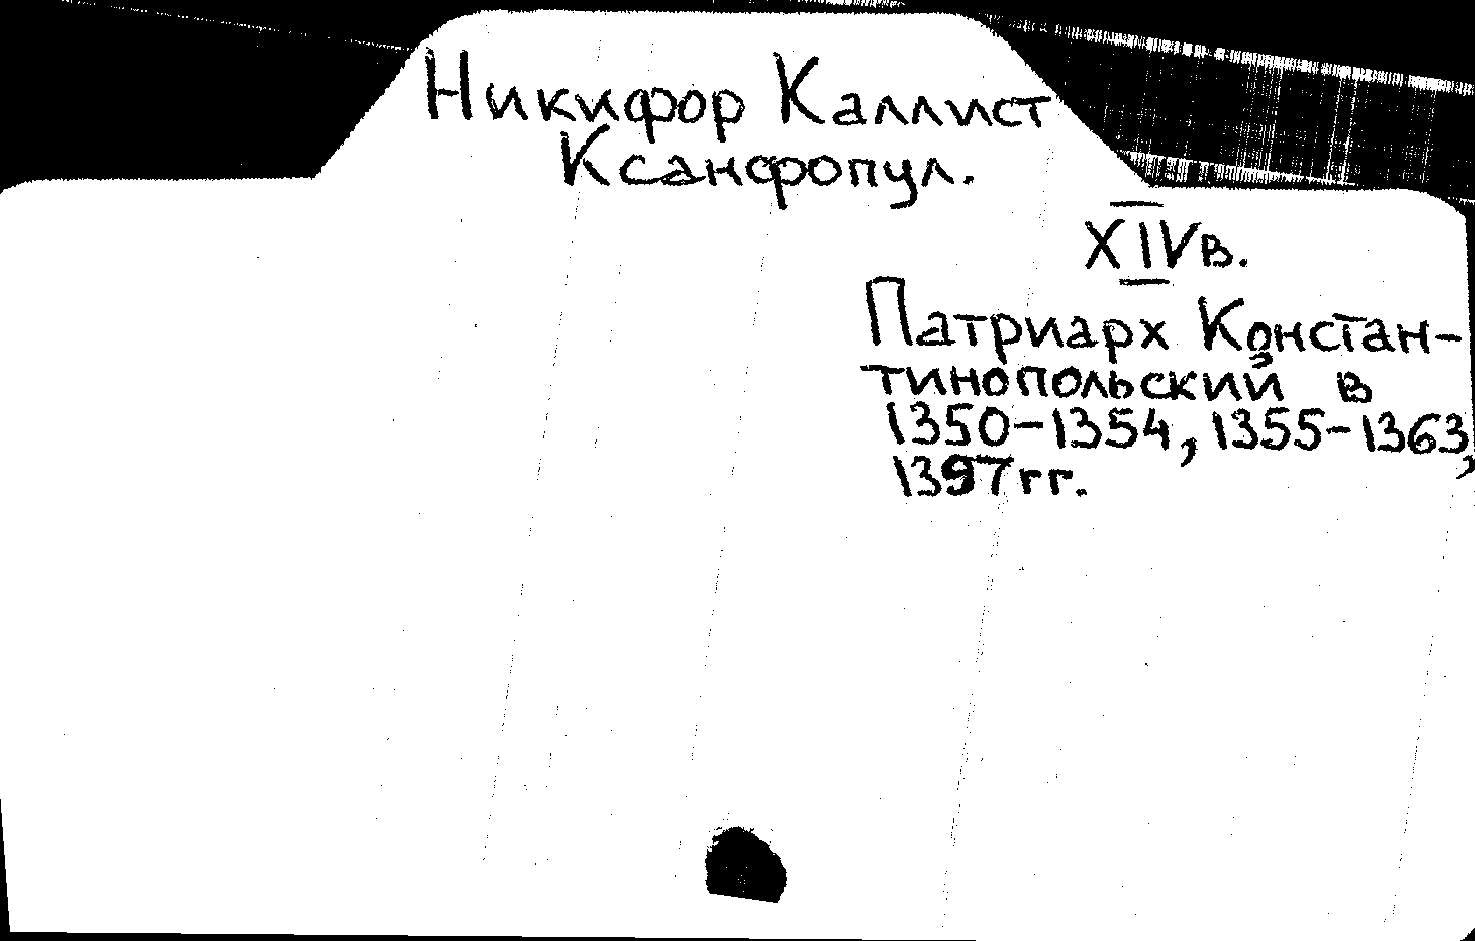 Никифор Каллист
Ксанфопул.
XIV в.
Патриарх Констан-
тинопольский в
1350-1354, 1355-1363,
1397 гг.